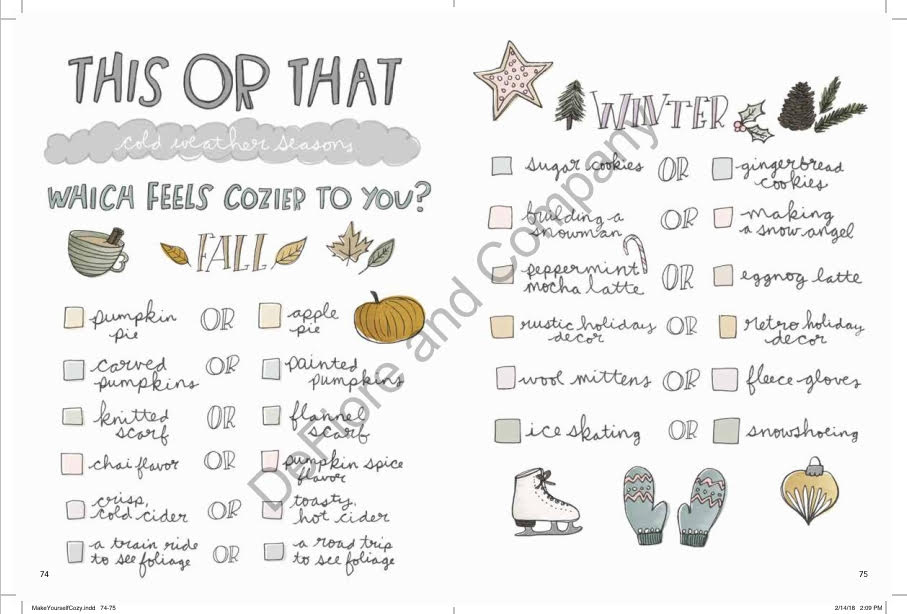 THIS OR THAT
cold weather seasons
WHICH FEELS COZIER TO YOU?
FALL
pumpkin pie OR apple pie
carved pumpkins OR painted pumpkins
knitted scarf OR flannel scarf
chai flavor OR pumpkin spice flavor
crisp, cold cider OR toasty, hot cider
a train ride to see foliage OR a road trip to see foliage
74
WINTER
sugar cookies OR gingerbread cookies
building a snowman OR making a snow angel
peppermint mocha latte OR eggnog latte
rustic holiday decor OR retro holiday decor
wool mittens OR fleece gloves
ice skating OR snowshoeing
75
DeFiore and Company
MakeYourselfCozy.indd 74-75
2/14/18 2:09 PM